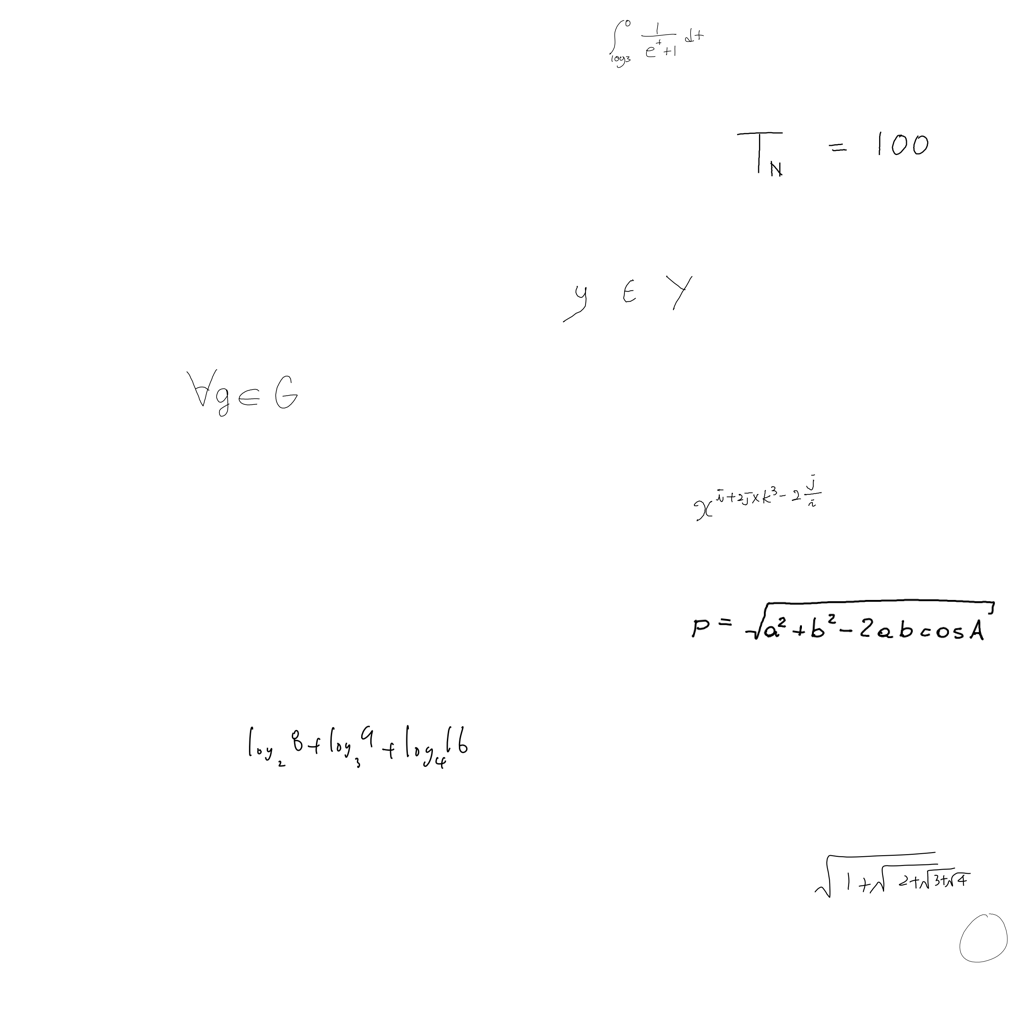 \int_{\log 3}^{0} \frac{1}{e^{t}+1} dt
T_{N} = 100
y \in Y
\forall g \in G
x^{i+2j \times k^{3}-2\frac{j}{i}}
p = \sqrt{a^{2}+b^{2}-2ab\cos A}
\log_{2} 8 + \log_{3} 9 + \log_{4} 16
\sqrt{1+\sqrt{2+\sqrt{3+\sqrt{4}}}}